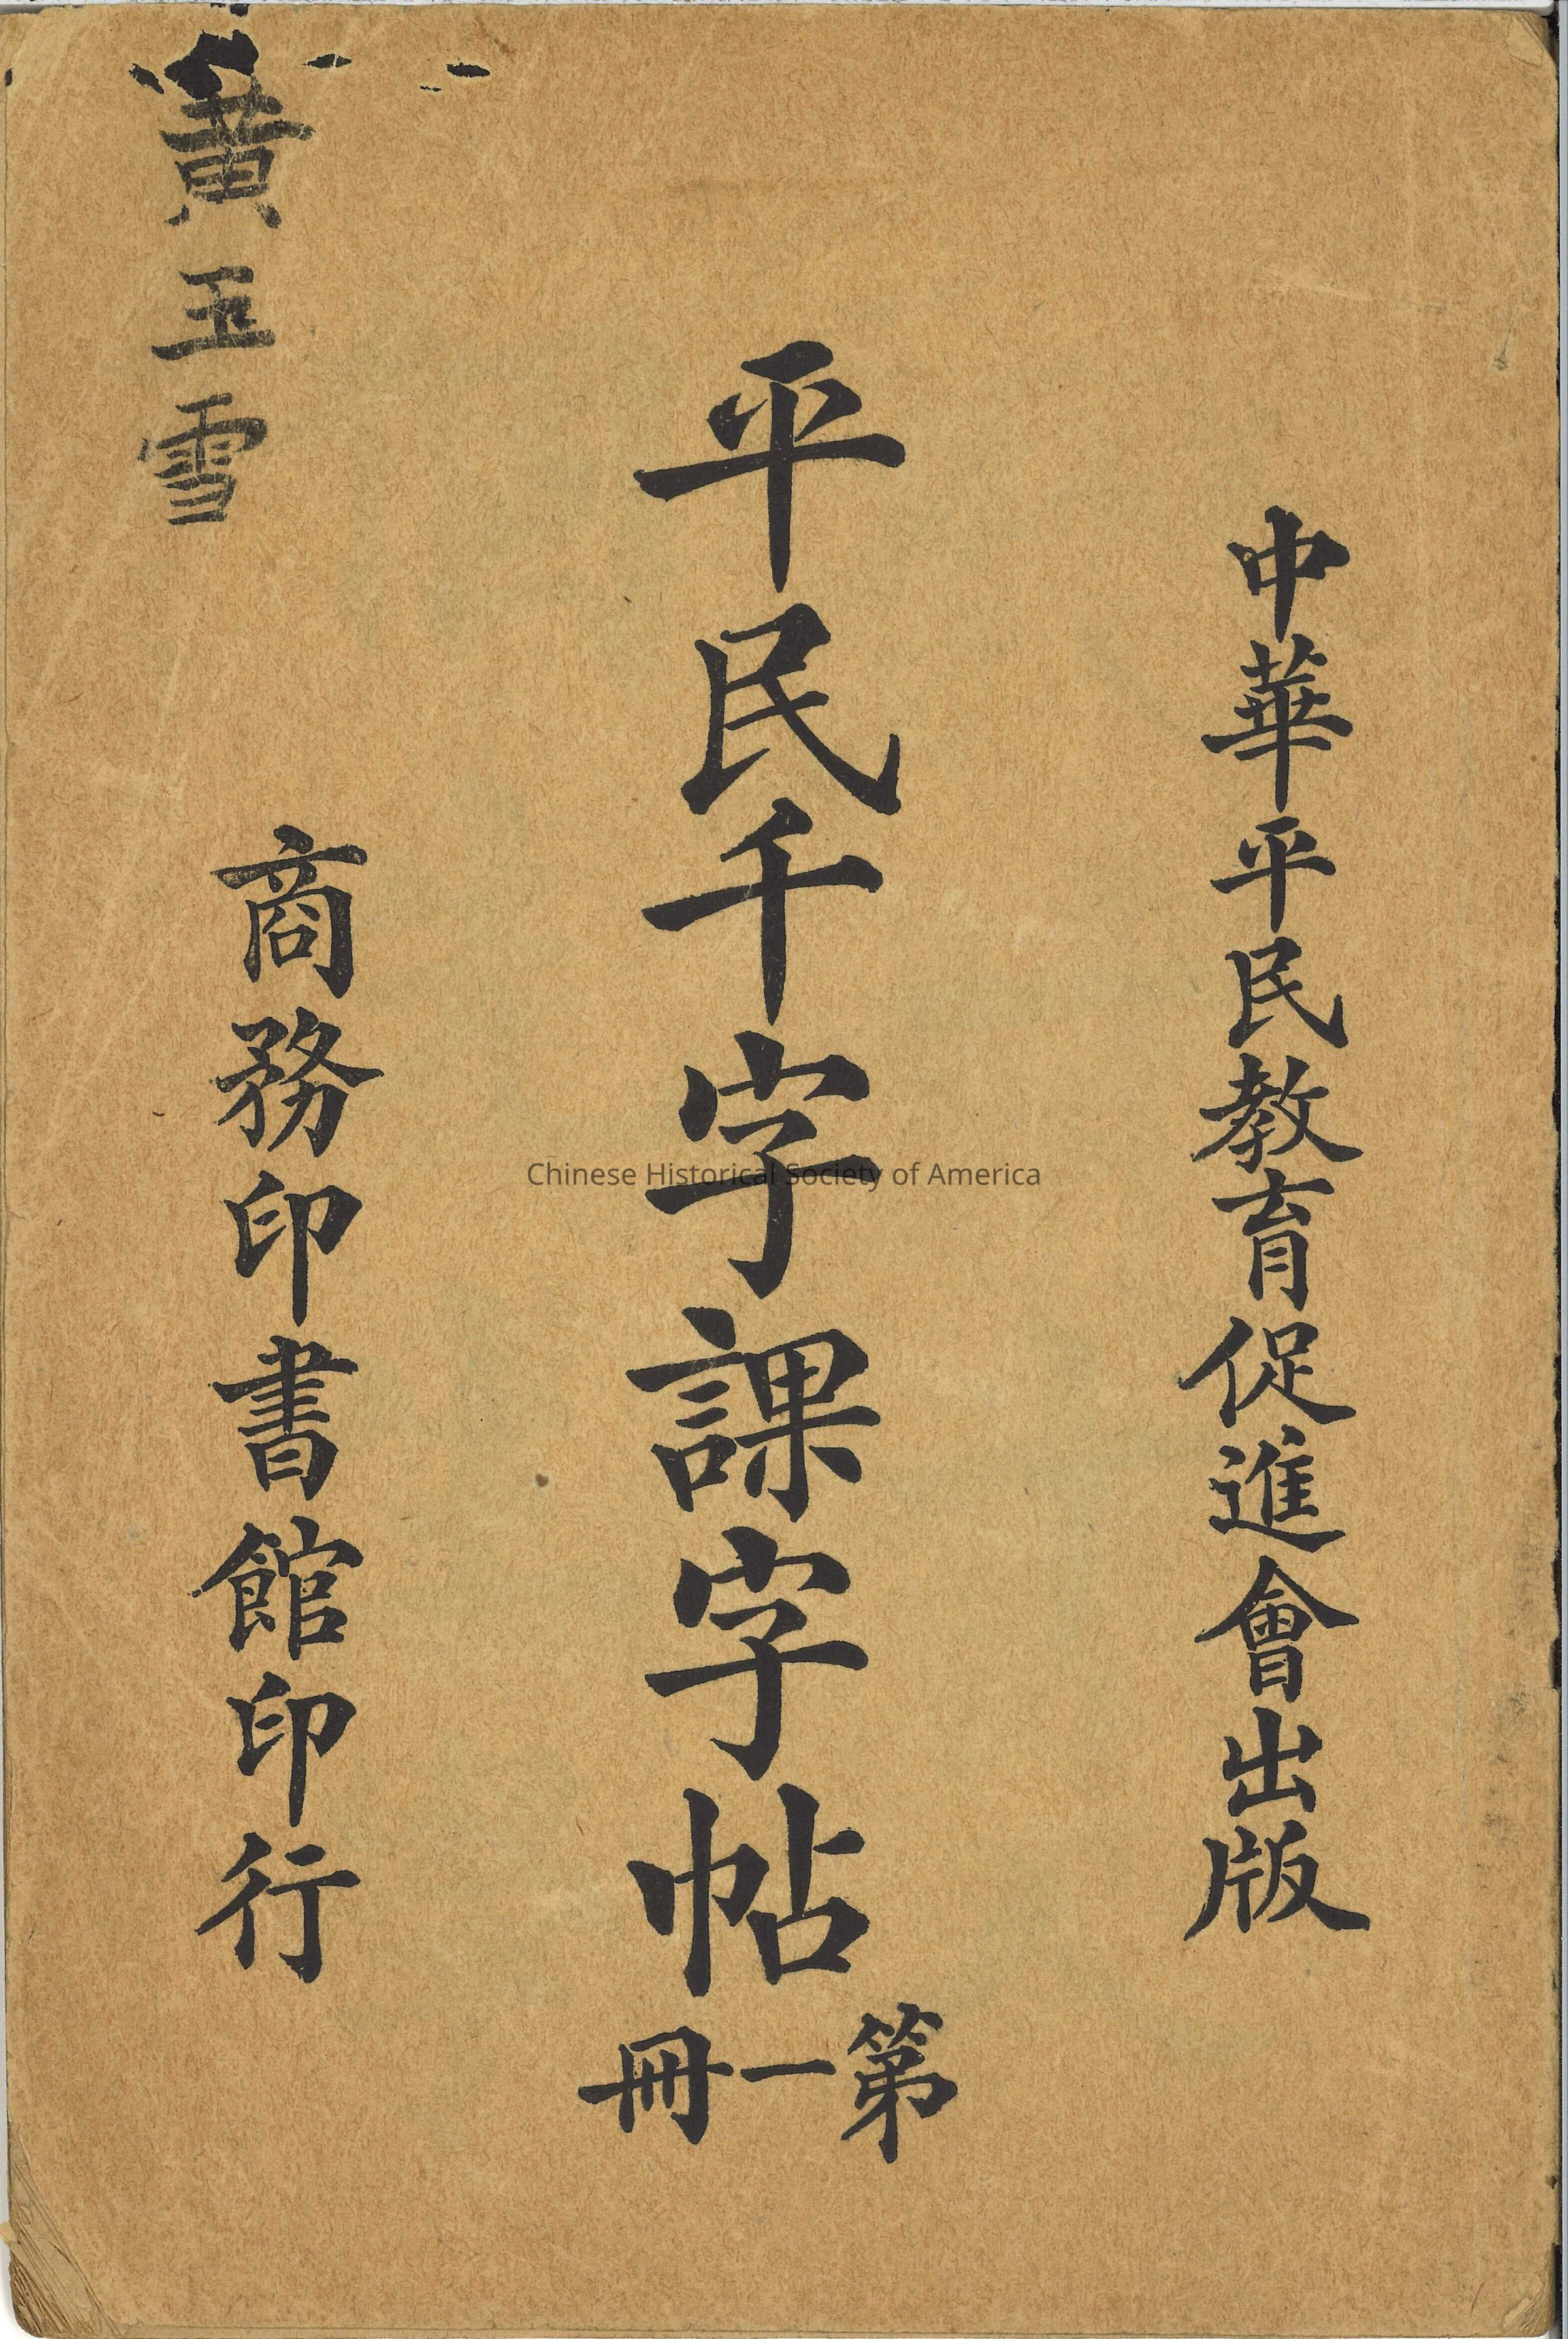 中華平民教育促進會出版
平民千字課字帖
第一冊
商務印書館印行
黃玉雪
Chinese Historical Society of America